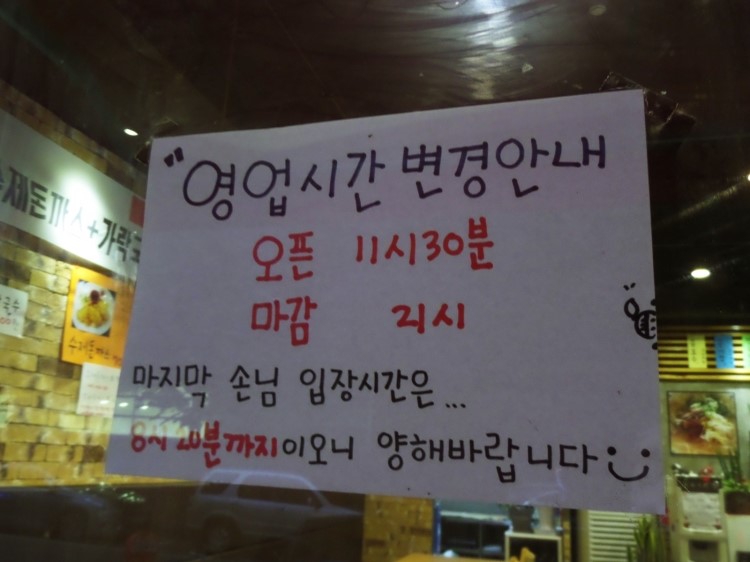 "영업시간 변경안내
오픈 11시30분
마감 21시
마지막 손님 입장시간은...
8시 20분까지이오니 양해바랍니다
수제돈까스+가락